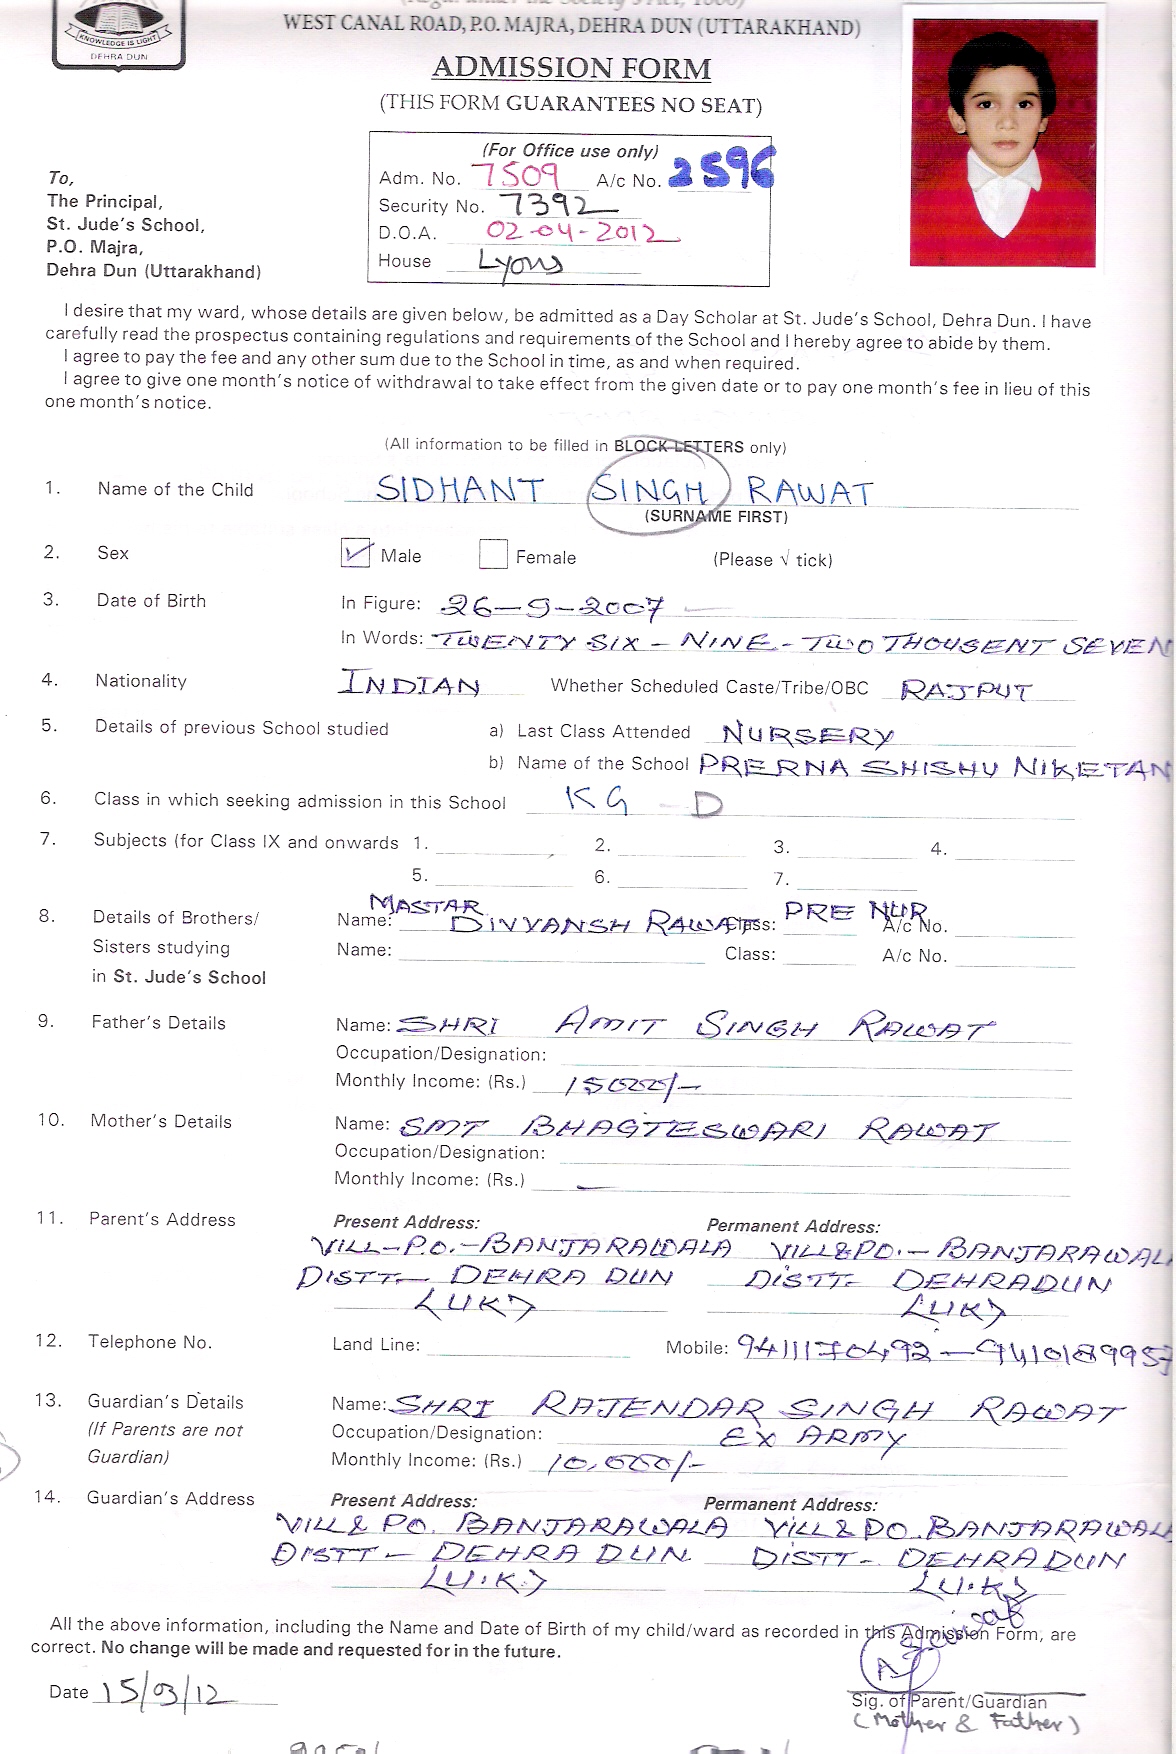 KNOWLEDGE IS LIGHT
DEHRA DUN
WEST CANAL ROAD, P.O. MAJRA, DEHRA DUN (UTTARAKHAND)
ADMISSION FORM
(THIS FORM GUARANTEES NO SEAT)
(For Office use only)
Adm. No. 7509 A/c No. 2596
Security No. 7392
D.O.A. 02-04-2012
House Lyons
To,
The Principal,
St. Jude's School,
P.O. Majra,
Dehra Dun (Uttarakhand)
I desire that my ward, whose details are given below, be admitted as a Day Scholar at St. Jude's School, Dehra Dun. I have
carefully read the prospectus containing regulations and requirements of the School and I hereby agree to abide by them.
I agree to pay the fee and any other sum due to the School in time, as and when required.
I agree to give one month's notice of withdrawal to take effect from the given date or to pay one month's fee in lieu of this
one month's notice.
(All information to be filled in BLOCK LETTERS only)
1. Name of the Child SIDHANT SINGH RAWAT
(SURNAME FIRST)
2. Sex Male Female (Please √ tick)
3. Date of Birth In Figure: 26-9-2007
In Words: TWENTY SIX - NINE - TWO THOUSENT SEVEN
4. Nationality INDIAN Whether Scheduled Caste/Tribe/OBC RAJPUT
5. Details of previous School studied a) Last Class Attended NURSERY
b) Name of the School PRERNA SHISHU NIKETAN
6. Class in which seeking admission in this School KG - D
7. Subjects (for Class IX and onwards 1. 2. 3. 4.
5. 6. 7.
8. Details of Brothers/ Name: MASTAR DIVYANSH RAWAT Class: PRE NUR A/c No.
Sisters studying Name: Class: A/c No.
in St. Jude's School
9. Father's Details Name: SHRI AMIT SINGH RAWAT
Occupation/Designation:
Monthly Income: (Rs.) 15000/-
10. Mother's Details Name: SMT BHAGTESWARI RAWAT
Occupation/Designation:
Monthly Income: (Rs.) —
11. Parent's Address Present Address: Permanent Address:
VILL-P.O.-BANJARAWALA VILL&PO.- BANJARAWAL
DISTT- DEHRA DUN DISTT- DEHRADUN
(UK) (UK)
12. Telephone No. Land Line: Mobile: 9411170492-9410189957
13. Guardian's Details Name: SHRI RAJENDAR SINGH RAWAT
(If Parents are not Occupation/Designation: EX ARMY
Guardian) Monthly Income: (Rs.) 10,000/-
14. Guardian's Address Present Address: Permanent Address:
VILL & PO. BANJARAWALA VILL & PO. BANJARAWAL
DISTT- DEHRA DUN DISTT- DEHRADUN
(U.K) (U.K)
All the above information, including the Name and Date of Birth of my child/ward as recorded in this Admission Form, are
correct. No change will be made and requested for in the future.
Date 15/03/12
Sig. of Parent/Guardian
(Mother & Father)